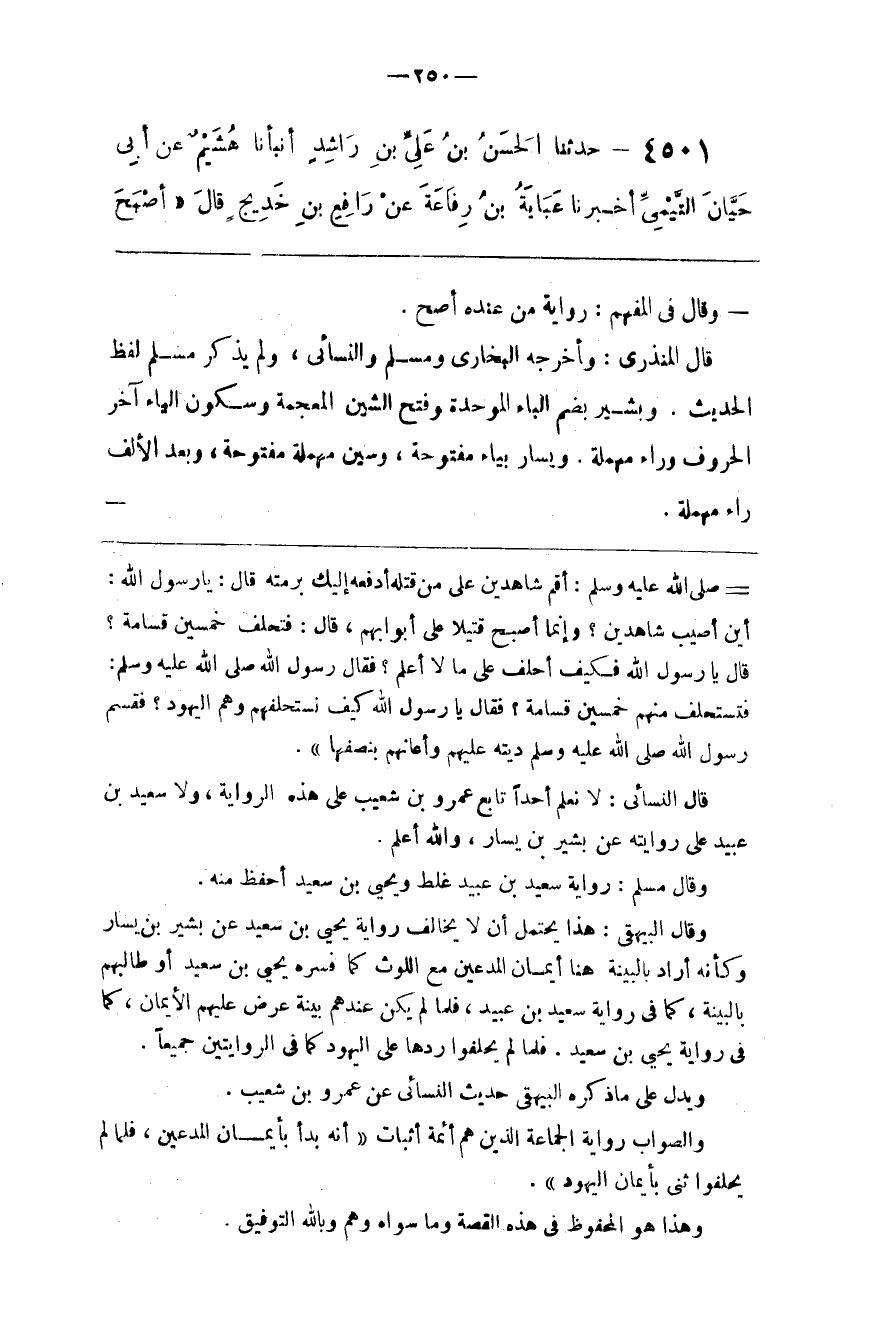 — ٢٥٠ —
٤٥٠١ — حدثنا الحَسَنُ بنُ عَلِيِّ بنِ رَاشِدٍ أنبأنا هُشَيْمٌ عن أبِى
حَيَّانَ التَّيْمِيِّ أخـبرنا عَبَايَةُ بنُ رِفَاعَةَ عنْ رَافِعِ بنِ خَدِيجٍ قالَ « أصْبَحَ
— وقال فى المفهم : رواية من عنده أصح .
قال المنذرى : وأخرجه البخارى ومسـلم والنسائى ، ولم يذكر مسـلم لفظ
الحديث . وبشـير بضم الباء الموحدة وفتح الشين المعجمة وسـكون الياء آخر
الحروف وراء مهملة . ويسار بياء مفتوحة ، وسين مهملة مفتوحة ، وبعد الألف
راء مهملة . —
= صلى الله عليه وسلم : أقم شاهدين على من قتله أدفعه إليك برمته قال : يا رسول الله :
أين أصيب شاهدين ؟ وإنما أصبح قتيلا على أبوابهم ، قال : فتحلف خمسين قسامة ؟
قال يا رسول الله فـكيف أحلف على ما لا أعلم ؟ فقال رسول الله صلى الله عليه وسلم :
فتستحلف منهم خمسين قسامة ؟ فقال يا رسول الله كيف نستحلفهم وهم اليهود ؟ فقسم
رسول الله صلى الله عليه وسلم ديته عليهم وأعانهم بنصفها » .
قال النسائى : لا نعلم أحداً تابع عمرو بن شعيب على هذه الرواية ، ولا سعيد بن
عبيد على روايته عن بشير بن يسار ، والله أعلم .
وقال مسلم : رواية سعيد بن عبيد غلط ويحيى بن سعيد أحفظ منه .
وقال البيهقى : هذا يحتمل أن لا يخالف رواية يحيى بن سعيد عن بشير بن يسار
وكأنه أراد بالبينة هنا أيمـان المدعين مع اللوث كما فسره يحيى بن سعيد أو طالبهم
بالبينة ، كما فى رواية سعيد بن عبيد ، فلما لم يكن عندهم بينة عرض عليهم الأيمان ، كما
فى رواية يحيى بن سعيد . فلما لم يحلفوا ردها على اليهود كما فى الروايتين جميعاً .
ويدل على ما ذكره البيهقى حديث النسائى عن عمرو بن شعيب .
والصواب رواية الجماعة الذين هم أئمة أثبات « أنه بدأ بأيمـان المدعين ، فلما لم
يحلفوا ثنى بأيمان اليهود » .
وهذا هو المحفوظ فى هذه القصة وما سواه وهم وبالله التوفيق .